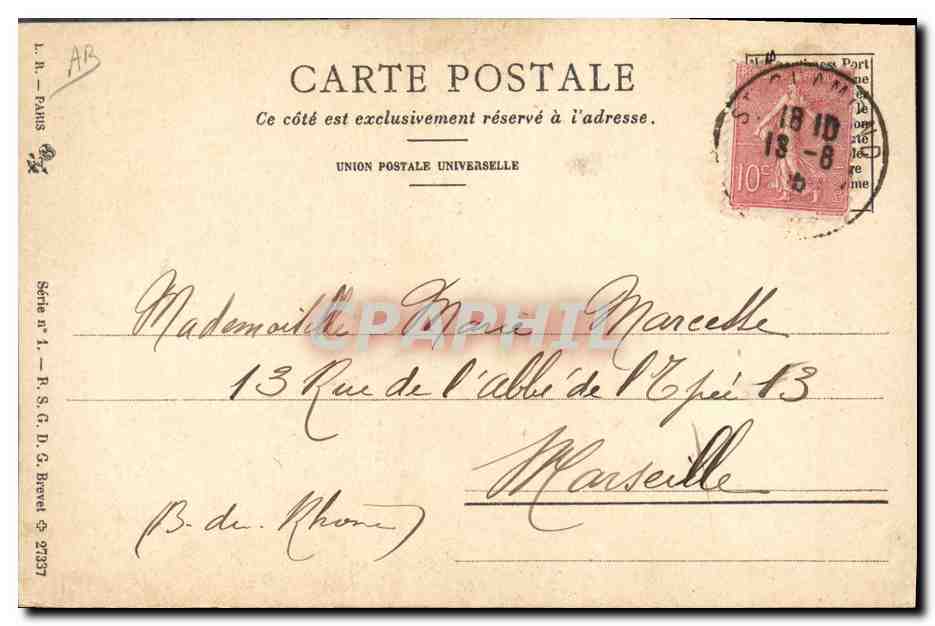 AR
CARTE POSTALE
Ce côté est exclusivement réservé à l'adresse.
UNION POSTALE UNIVERSELLE
ST CHAMOND
18 10
13 -8
10c
Mademoiselle Marie Marcelle
13 Rue de l'abbé de l'Epée 13
Marseille
(B. du. Rhône)
CPAPHIL
L. R. — PARIS
Série n° 1. — P. S. G. D. G. Brevet 27337